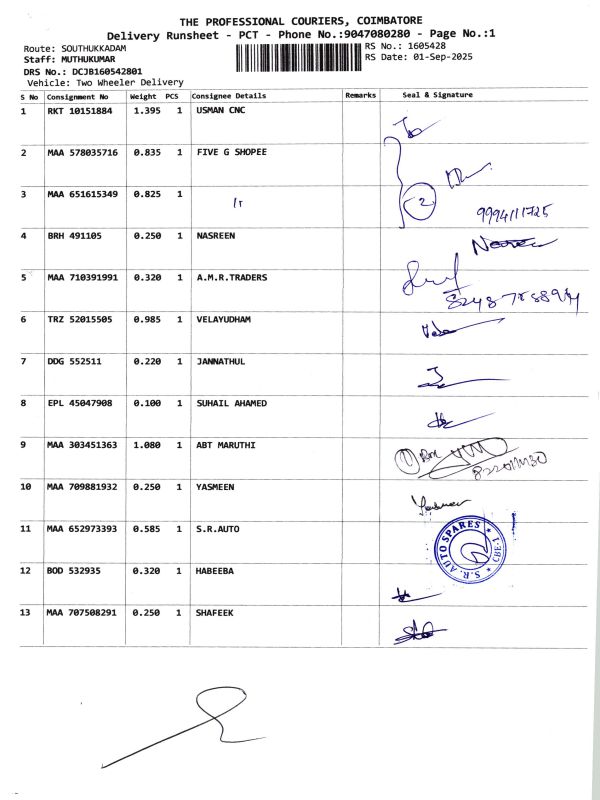 THE PROFESSIONAL COURIERS, COIMBATORE
Delivery Runsheet - PCT - Phone No.:9047080280 - Page No.:1
Route: SOUTHUKKADAM RS No.: 1605428
Staff: MUTHUKUMAR RS Date: 01-Sep-2025
DRS No.: DCJB160542801
Vehicle: Two Wheeler Delivery
S No Consignment No Weight PCS Consignee Details Remarks Seal & Signature
1 RKT 10151884 1.395 1 USMAN CNC
2 MAA 578035716 0.835 1 FIVE G SHOPEE
3 MAA 651615349 0.825 1
2
9994111725
4 BRH 491105 0.250 1 NASREEN
5 MAA 710391991 0.320 1 A.M.R.TRADERS
6 TRZ 52015505 0.985 1 VELAYUDHAM
7 DDG 552511 0.220 1 JANNATHUL
8 EPL 45047908 0.100 1 SUHAIL AHAMED
9 MAA 303451363 1.080 1 ABT MARUTHI
10 MAA 709881932 0.250 1 YASMEEN
11 MAA 652973393 0.585 1 S.R.AUTO
S.R. AUTO SPARES * CBE-1 *
12 BOD 532935 0.320 1 HABEEBA
13 MAA 707508291 0.250 1 SHAFEEK